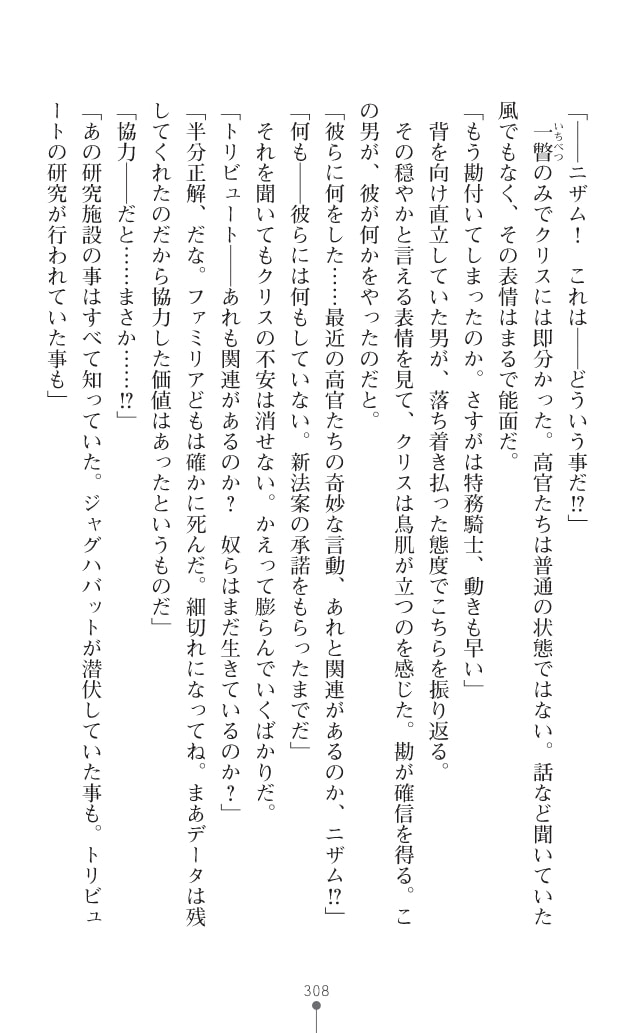 「――ニザム！　これは――どういう事だ!?」
　一瞥のみでクリスには即分かった。高官たちは普通の状態ではない。話など聞いていた
いちべつ
風でもなく、その表情はまるで能面だ。
「もう勘付いてしまったのか。さすがは特務騎士、動きも早い」
　背を向け直立していた男が、落ち着き払った態度でこちらを振り返る。
　その穏やかと言える表情を見て、クリスは鳥肌が立つのを感じた。勘が確信を得る。こ
の男が、彼が何かをやったのだと。
「彼らに何をした……最近の高官たちの奇妙な言動、あれと関連があるのか、ニザム!?」
「何も――彼らには何もしていない。新法案の承諾をもらったまでだ」
　それを聞いてもクリスの不安は消せない。かえって膨らんでいくばかりだ。
「トリビュート――あれも関連があるのか？　奴らはまだ生きているのか？」
「半分正解、だな。ファミリアどもは確かに死んだ。細切れになってね。まあデータは残
してくれたのだから協力した価値はあったというものだ」
「協力――だと……まさか……!?」
「あの研究施設の事はすべて知っていた。ジャグハバットが潜伏していた事も。トリビュ
ートの研究が行われていた事も」
308